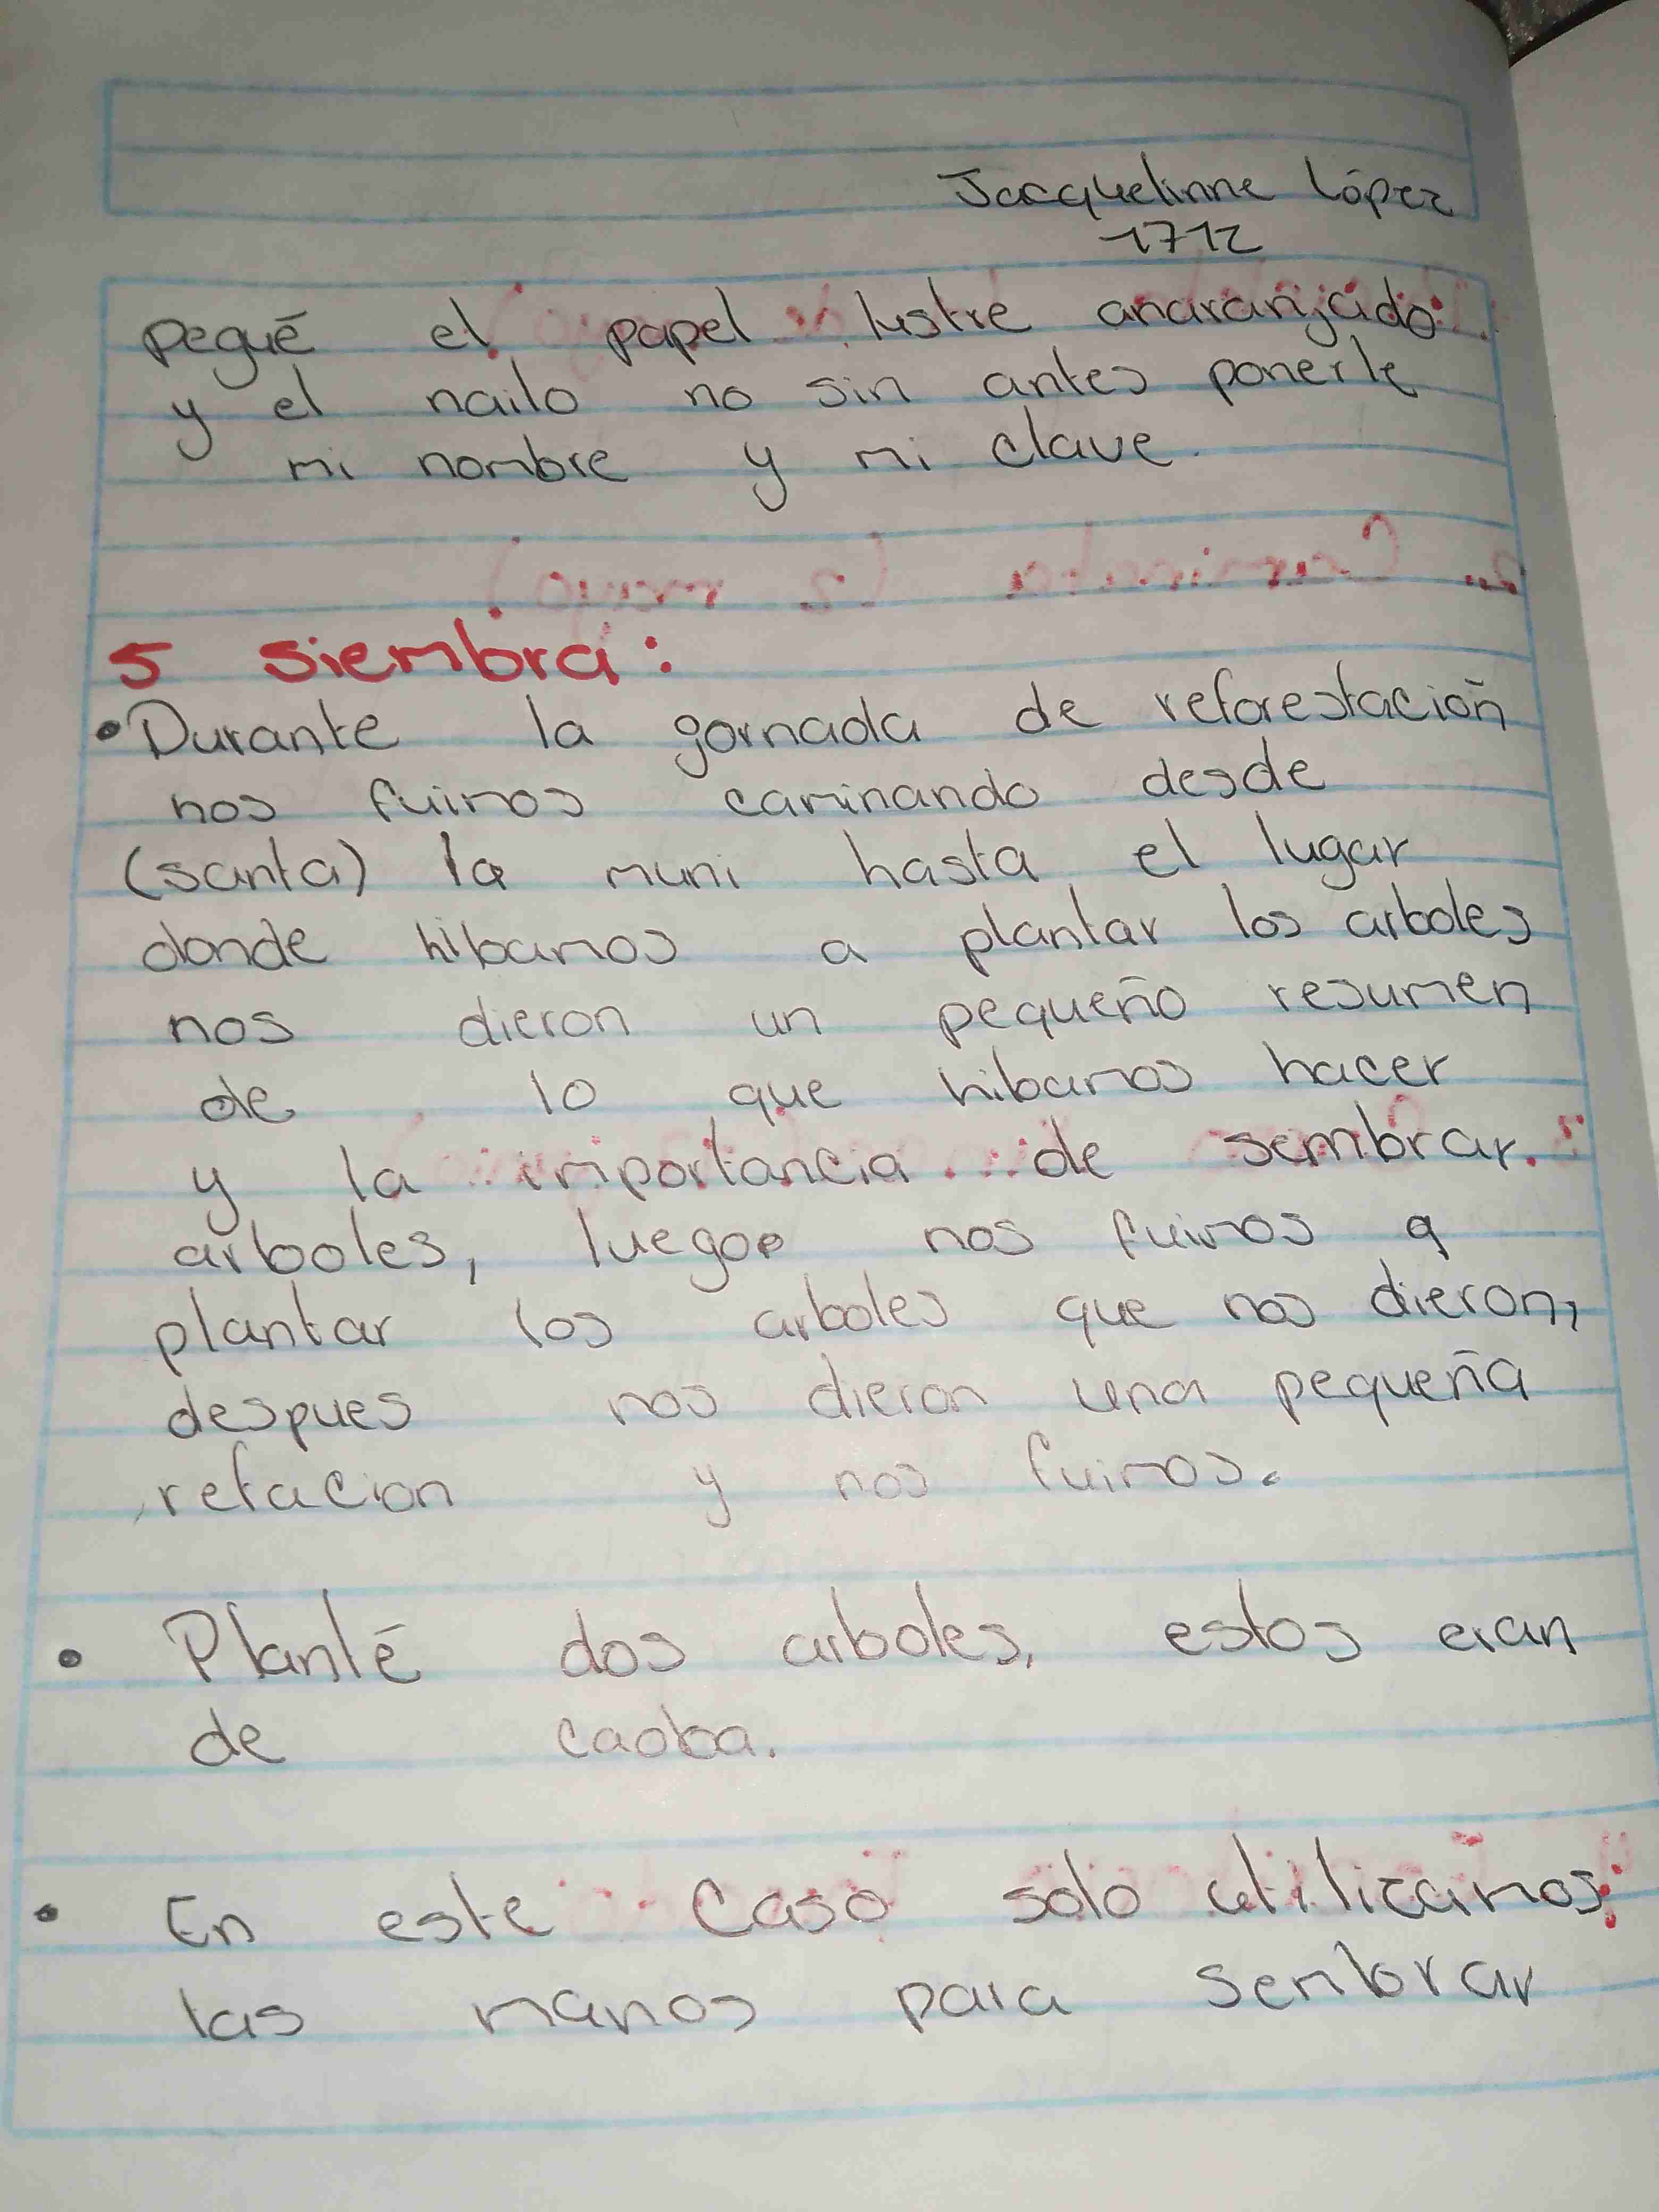 Jacquelinne López
1712
pegué el papel lustre anaranjado
y el nailo no sin antes ponerle
mi nombre y mi clave.
5 siembra:
• Durante la gornada de reforestación
nos fuimos caminando desde
(santa) la muni hasta el lugar
donde hibamos a plantar los arboles
nos dieron un pequeño resumen
de lo que hibamos hacer
y la importancia de sembrar
arboles, luego nos fuimos a
plantar los arboles que nos dieron,
despues nos dieron una pequeña
refacion y nos fuimos.
• Planté dos arboles, estos eran
de caoba.
• En este caso solo utilizamos
las manos para sembrar